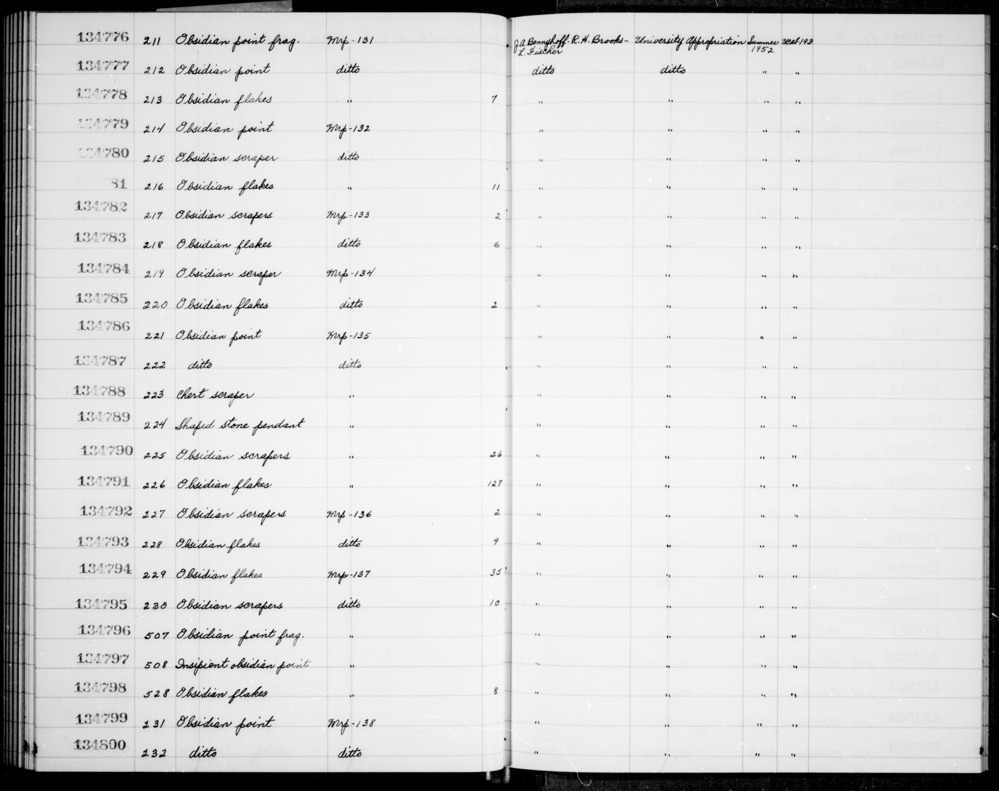 134776 211 Obsidian point frag. Mrp-131 J.A. Bennyhoff-R.H. Brooks- University Appropriation Summer
L. Fischer 1952
134777 212 Obsidian point ditto ditto ditto " "
134778 213 Obsidian flakes " 7 " " " "
134779 214 Obsidian point Mrp-132 " " " "
134780 215 Obsidian scraper ditto " " " "
81 216 Obsidian flakes " 11 " " " "
134782 217 Obsidian scrapers Mrp-133 2 " " " "
134783 218 Obsidian flakes ditto 6 " " " "
134784 219 Obsidian scraper Mrp-134 " " " "
134785 220 Obsidian flakes ditto 2 " " " "
134786 221 Obsidian point Mrp-135 " " " "
134787 222 ditto ditto " " " "
134788 223 Chert scraper " " " " "
134789 224 Shaped stone pendant " " " " "
134790 225 Obsidian scrapers " 26 " " " "
134791 226 Obsidian flakes " 127 " " " "
134792 227 Obsidian scrapers Mrp-136 2 " " " "
134793 228 Obsidian flakes ditto 9 " " " "
134794 229 Obsidian flakes Mrp-137 35 " " " "
134795 230 Obsidian scrapers ditto 10 " " " "
134796 507 Obsidian point frag. " " " " "
134797 508 Insipient obsidian point " " " " "
134798 528 Obsidian flakes " 8 " " " "
134799 231 Obsidian point Mrp-138 " " " "
134800 232 ditto ditto " " " "